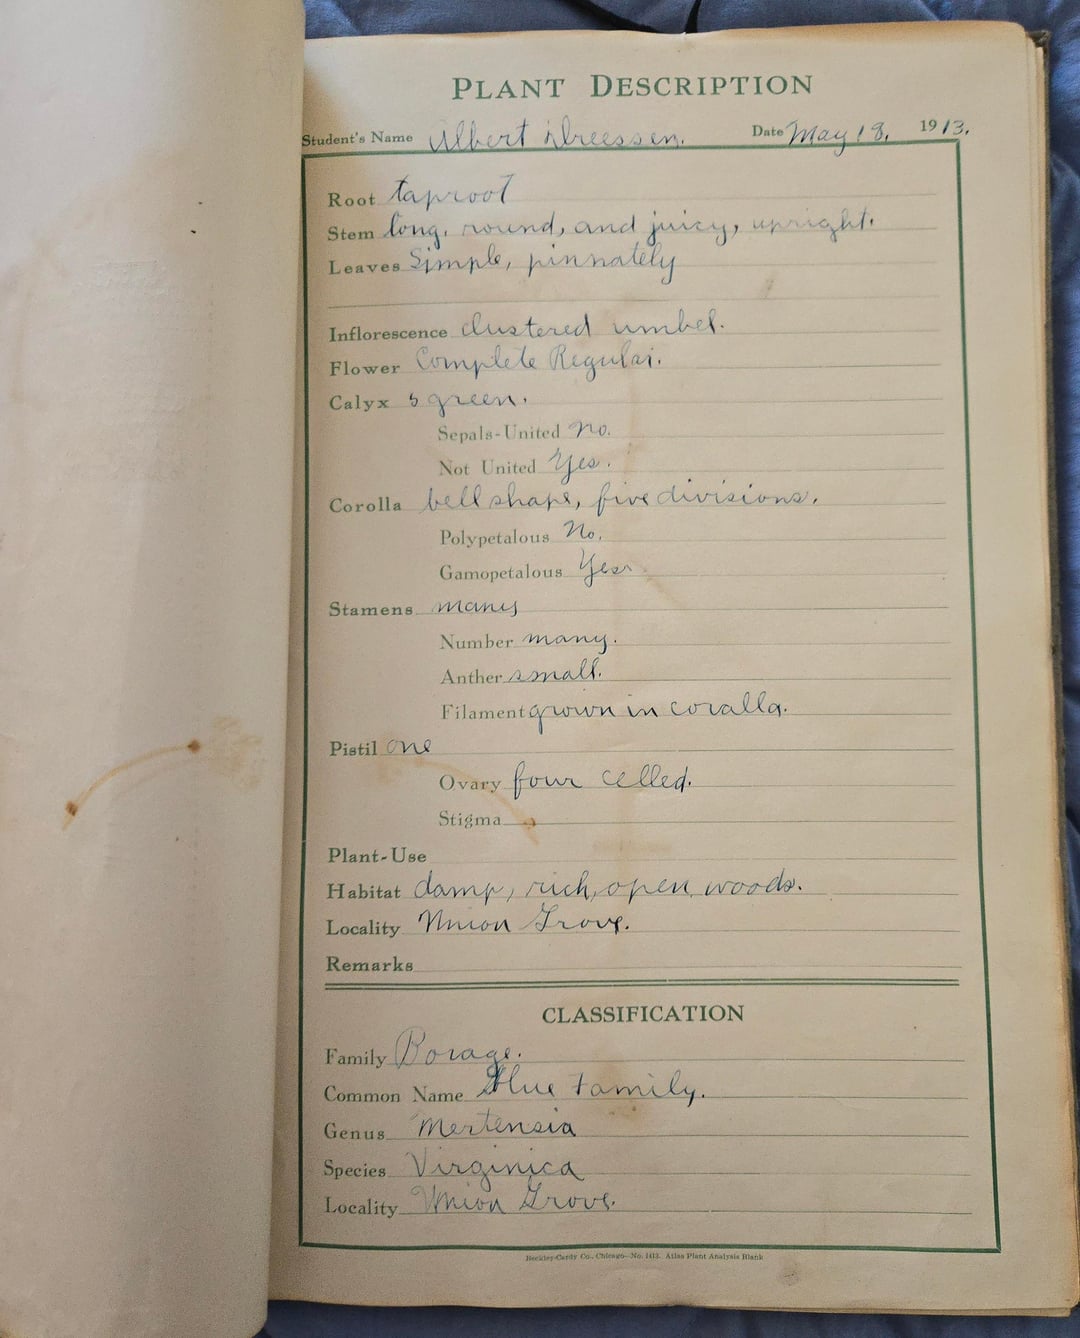 PLANT DESCRIPTION
Student's Name Albert Dreessen. Date May 18, 1913.
Root taproot
Stem long, round, and juicy, upright.
Leaves Simple, pinnately
Inflorescence clustered umbel.
Flower Complete Regular.
Calyx 5 green.
Sepals-United No.
Not United Yes.
Corolla bell shape, five divisions.
Polypetalous No.
Gamopetalous Yes
Stamens many
Number many.
Anther small.
Filament grown in coralla.
Pistil one
Ovary four celled.
Stigma
Plant-Use
Habitat damp, rich, open woods.
Locality Union Grove.
Remarks
CLASSIFICATION
Family Borage.
Common Name Family.
Genus Mertensia
Species Virginica
Locality Union Grove.
Beckley-Cardy Co., Chicago—No. 1413. Atlas Plant Analysis Blank